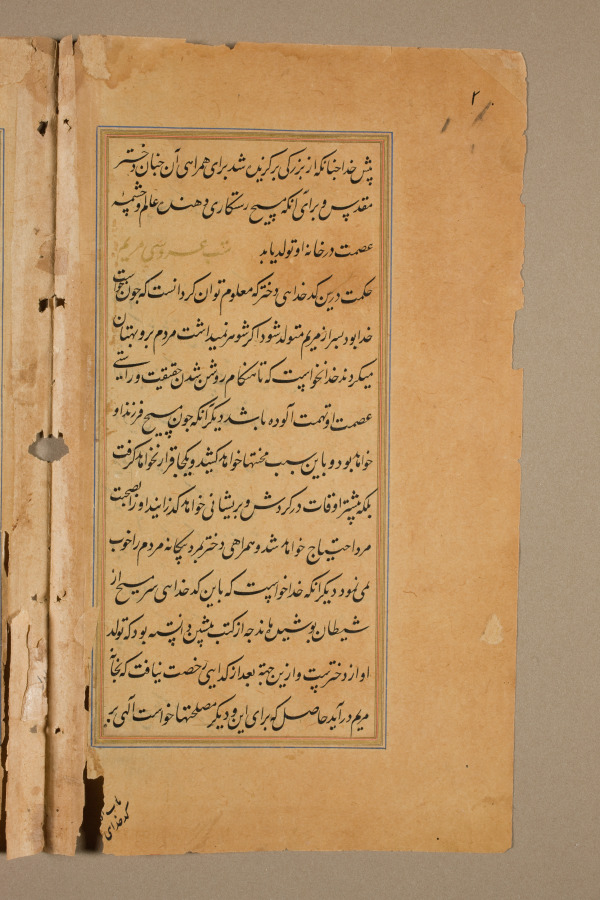 ۲
پیش خدا چنانکه از بزرگی برگزیده شد برای همراهی آن چنان دختر
مقدس و برای آنکه مسیح رستکاری دهنده عالم و چشمهٔ
عصمت در خانه او تولد یابد
حکمت درین کدخداهی دختر که معلوم توان کرد انست که چون
خدا بود پسر از مریم متولد شود اکر شوهر نمیداشت مردم برو بهتان
میکردند خدا نخواست که تا هنکام روشن شدن حقیقت و راستی
عصمت او تهمت آلوده باشد دیکر آنکه چون مسیح فرزند او
خواهد بود و باین سبب محنتها خواهد کشید و یکجا قرار نخواهد کرفت
بلکه بیشتر اوقات در کردش و پریشانی خواهد کذرانید او را بصحبت
مرد احتیاج خواهد شد و همراهی دختر بمرد بیکانه مردم را خوب
نمی نمود دیکر آنکه خدا خواست که باین کدخداهی سر مسیح از
شیطان پوشیده ماند چه از کتب پیشین دانسته بود که تولد
او از دختر ست و ازین جهة بعد از کدایی رخصت نیافت که بخانه
مریم در آید حاصل که برای این و دیکر مصلحتها خواست آلهی بر
باب
کدخدای